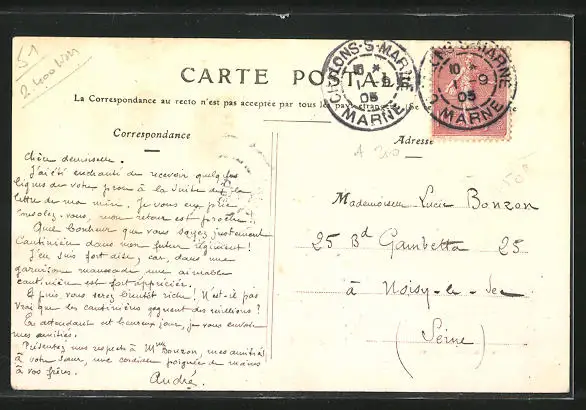 51
2400
CARTE POSTALE
La Correspondance au recto n'est pas acceptée par tous les pays étrangers
CHALONS-S-MARNE
10 * 9
05
MARNE
CHALONS-S-MARNE
10 * 9
05
MARNE
Correspondance
Adresse
Chère demoiselle.
J'ai été enchanté de recevoir quelques
lignes de votre part à la suite de la
lettre de ma mère. Je vous en prie
consolez-vous, mon retour est proche!!
Quel bonheur que vous soyez justement
Cantinière dans mon futur régiment!
J'en suis fort aise, car, dans une
garnison maussade une aimable
cantinière est fort appréciée.
Et puis vous serez bientôt riche! N'est-il pas
vrai que les cantinières gagnent des millions?
En attendant cet heureux jour, je vous envoie
mes amitiés.
Présentez mes respects à Mme Bonzon, mes amitiés
à votre sœur, une cordiale poignée de mains
à vos frères.
André.
Mademoiselle Lucie Bonzon
25 Bd Gambetta 25
à Noisy-le-Sec
(Seine)